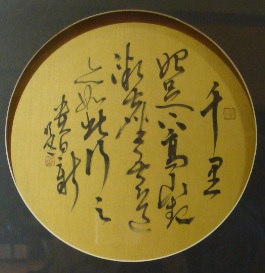 千里
始足下高山起
微塵吾道
亦如此行之
貴日新